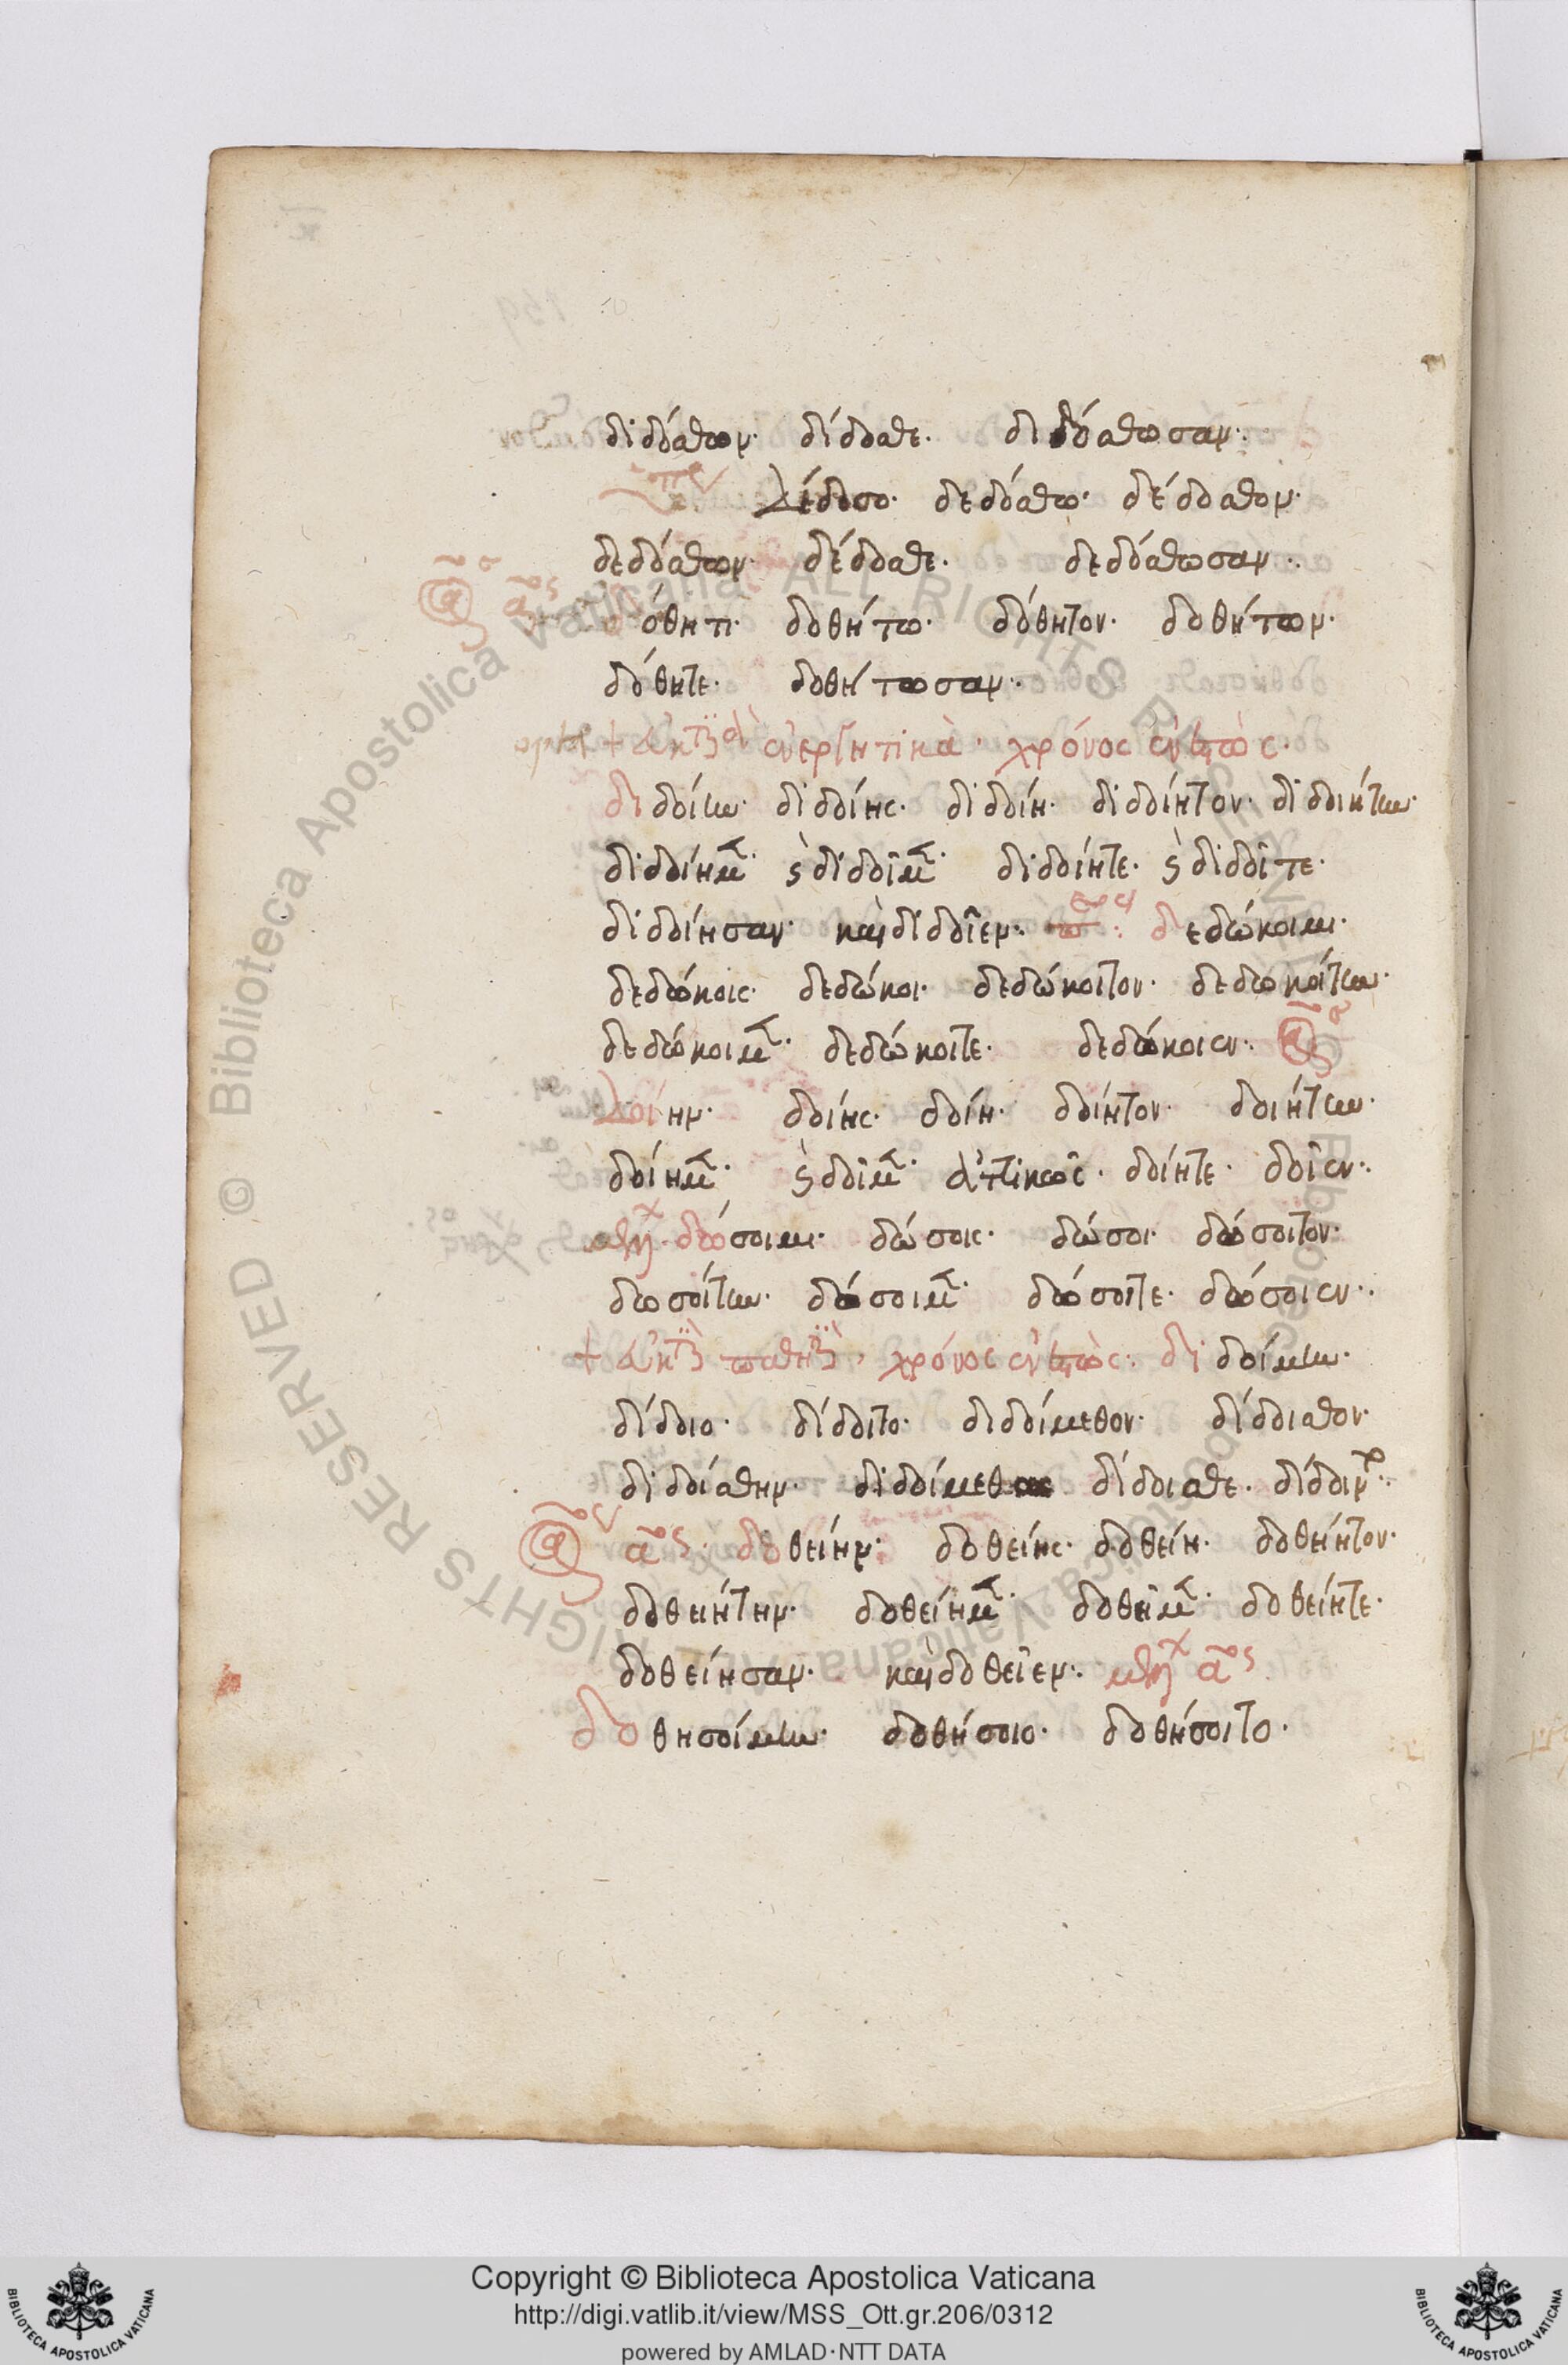 διδόσθων· δίδοσθε· διδόσθωσαν:
Δέδοσο· δεδόσθω· δέδοσθον·
δεδόσθων· δέδοσθε· δεδόσθωσαν:
όθητι· δοθήτω· δόθητον· δοθήτων·
δόθητε· δοθήτωσαν:
ἐνεργητικὰ· χρόνος ἐνεστὼς·
διδοίην· διδοίης· διδοίη· διδοίητον· διδοιήτην·
διδοίημ· διδοῖμ· διδοίητε· διδοῖτε·
διδοίησαν· καὶ διδοῖεν· δεδώκοιμι·
δεδώκοις· δεδώκοι· δεδώκοιτον· δεδωκοίτην·
δεδώκοιμ· δεδώκοιτε· δεδώκοιεν:
Δοίην· δοίης· δοίη· δοίητον· δοιήτην·
δοίημ· δοῖμ· ἀττικῶς· δοίητε· δοῖεν:
δώσοιμι· δώσοις· δώσοι· δώσοιτον·
δωσοίτην· δώσοιμ· δώσοιτε· δώσοιεν:
χρόνος ἐνεστὼς: διδοίμην·
δίδοιο· δίδοιτο· διδοίμεθον· δίδοισθον·
διδοίσθην· διδοίμεθα δίδοισθε· δίδοιντο:
δοθείην· δοθείης· δοθείη· δοθείητον·
δοθειήτην· δοθείημ· δοθεῖμ· δοθείητε·
δοθείησαν· καὶ δοθεῖεν:
δοθησοίμην· δοθήσοιο· δοθήσοιτο·
Copyright © Biblioteca Apostolica Vaticana
http://digi.vatlib.it/view/MSS_Ott.gr.206/0312
powered by AMLAD·NTT DATA